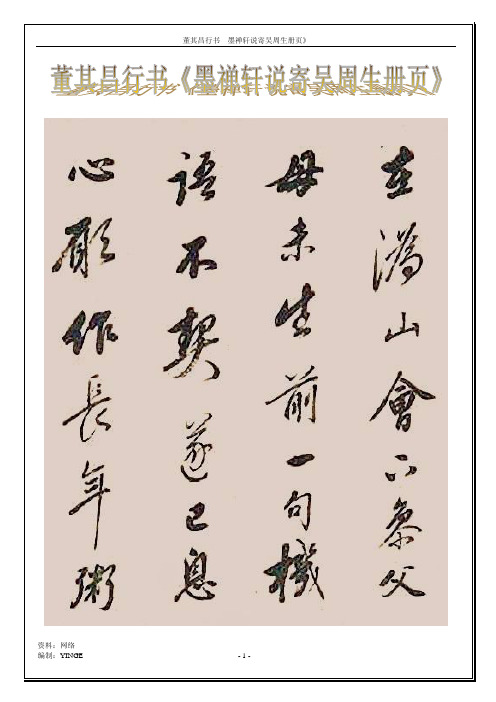 董其昌行书　墨禅轩说寄吴周生册页》
董其昌行书《墨禅轩说寄吴周生册页》
在溈山會下叅父
母未生前一句機
語不契遂已息
心願作長年粥
资料：网络
编制：YINGE - 1 -